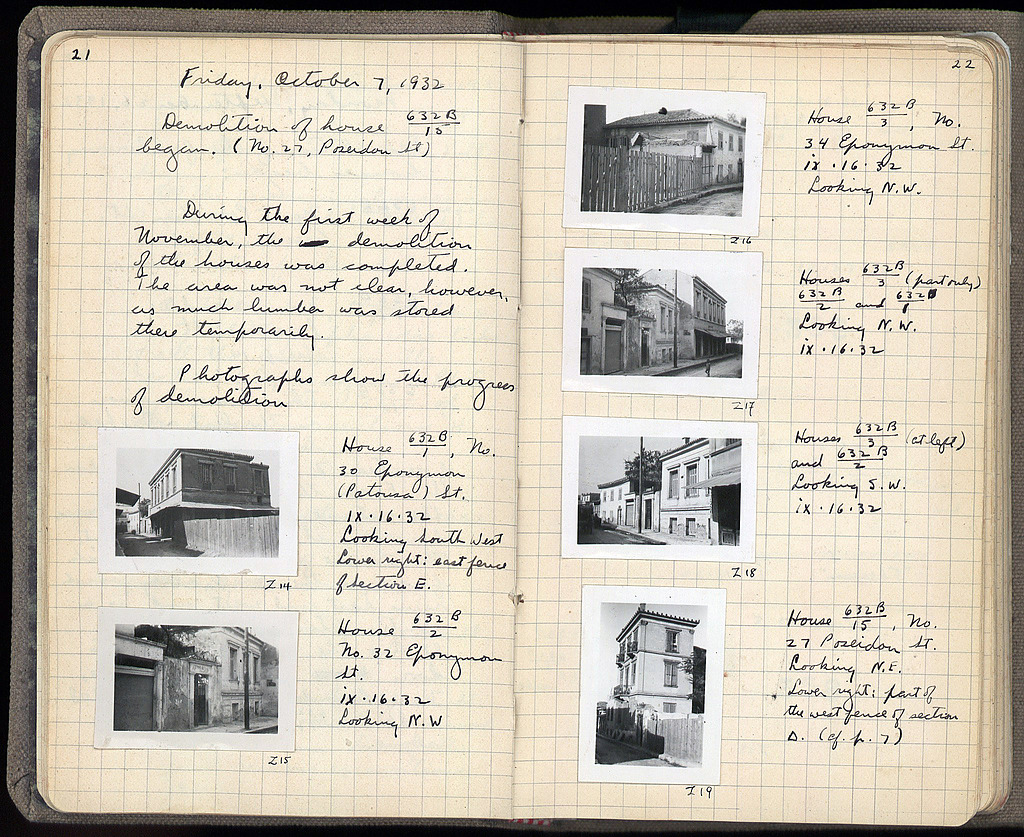 21
Friday, October 7, 1932
Demolition of house 632B/15
began. (No. 27, Poseidon St)
During the first week of
November, the demolition
of the houses was completed.
The area was not clear, however,
as much lumber was stored
there temporarily.
Photographs show the progress
of demolition
House 632B/1, No.
30 Eponymon
(Patousa) St.
ix·16·32
Looking South West
Lower right: east fence
of section E.
Z14
House 632B/2
No. 32 Eponymon
St.
ix·16·32
Looking N.W
Z15
22
House 632B/3, No.
34 Eponymon St.
ix·16·32
Looking N.W.
Z16
Houses 632B/3 (part only)
632B/2 and 632B/1
Looking N.W.
ix·16·32
Z17
Houses 632B/3 (at left)
and 632B/2
Looking S.W.
ix·16·32
Z18
House 632B/15, No.
27 Poseidon St.
Looking N.E.
Lower right: part of
the west fence of section
Δ. (cf. p. 7)
Z19